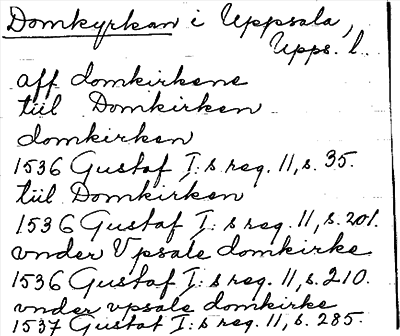 Domkyrkan i Uppsala,
Upps. l.
aff domkirkene
tiil Domkirken
domkirken
1536 Gustaf I:s reg. 11, s. 35.
tiil Domkirken
1536 Gustaf I:s reg. 11, s. 201.
vnder Vpsale domkirke
1536 Gustaf I:s reg. 11, s. 210.
vnder vpsale domkirke
1537 Gustaf I:s reg. 11, s. 285.